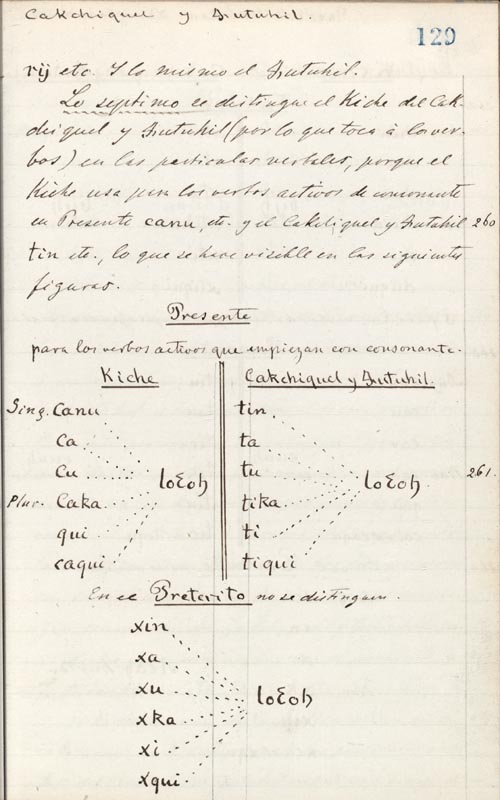 Cakchiquel y Zutuhil.
129
rij etc. Y lo mismo el Zutuhil.
Lo septimo se distingue el Kiche del Cak-
chiquel y Zutuhil (por lo que toca à los ver-
bos) en las particulas verbales, porque el
Kiche usa para los verbos activos de consonante
en Presente canu, etc. y el Cakchiquel y Zutuhil 260
tin etc., lo que se hace visible en las siguientes
figuras.
Presente
para los verbos activos que empiezan con consonante.
Kiche Cakchiquel y Zutuhil.
Sing. Canu tin
ca ta
cu loƐoh tu loƐoh 261.
Plur. Caka tika
qui ti
caqui tiqui
En el Preterito no se distinguen.
xin
xa
xu loƐoh
xka
xi
xqui